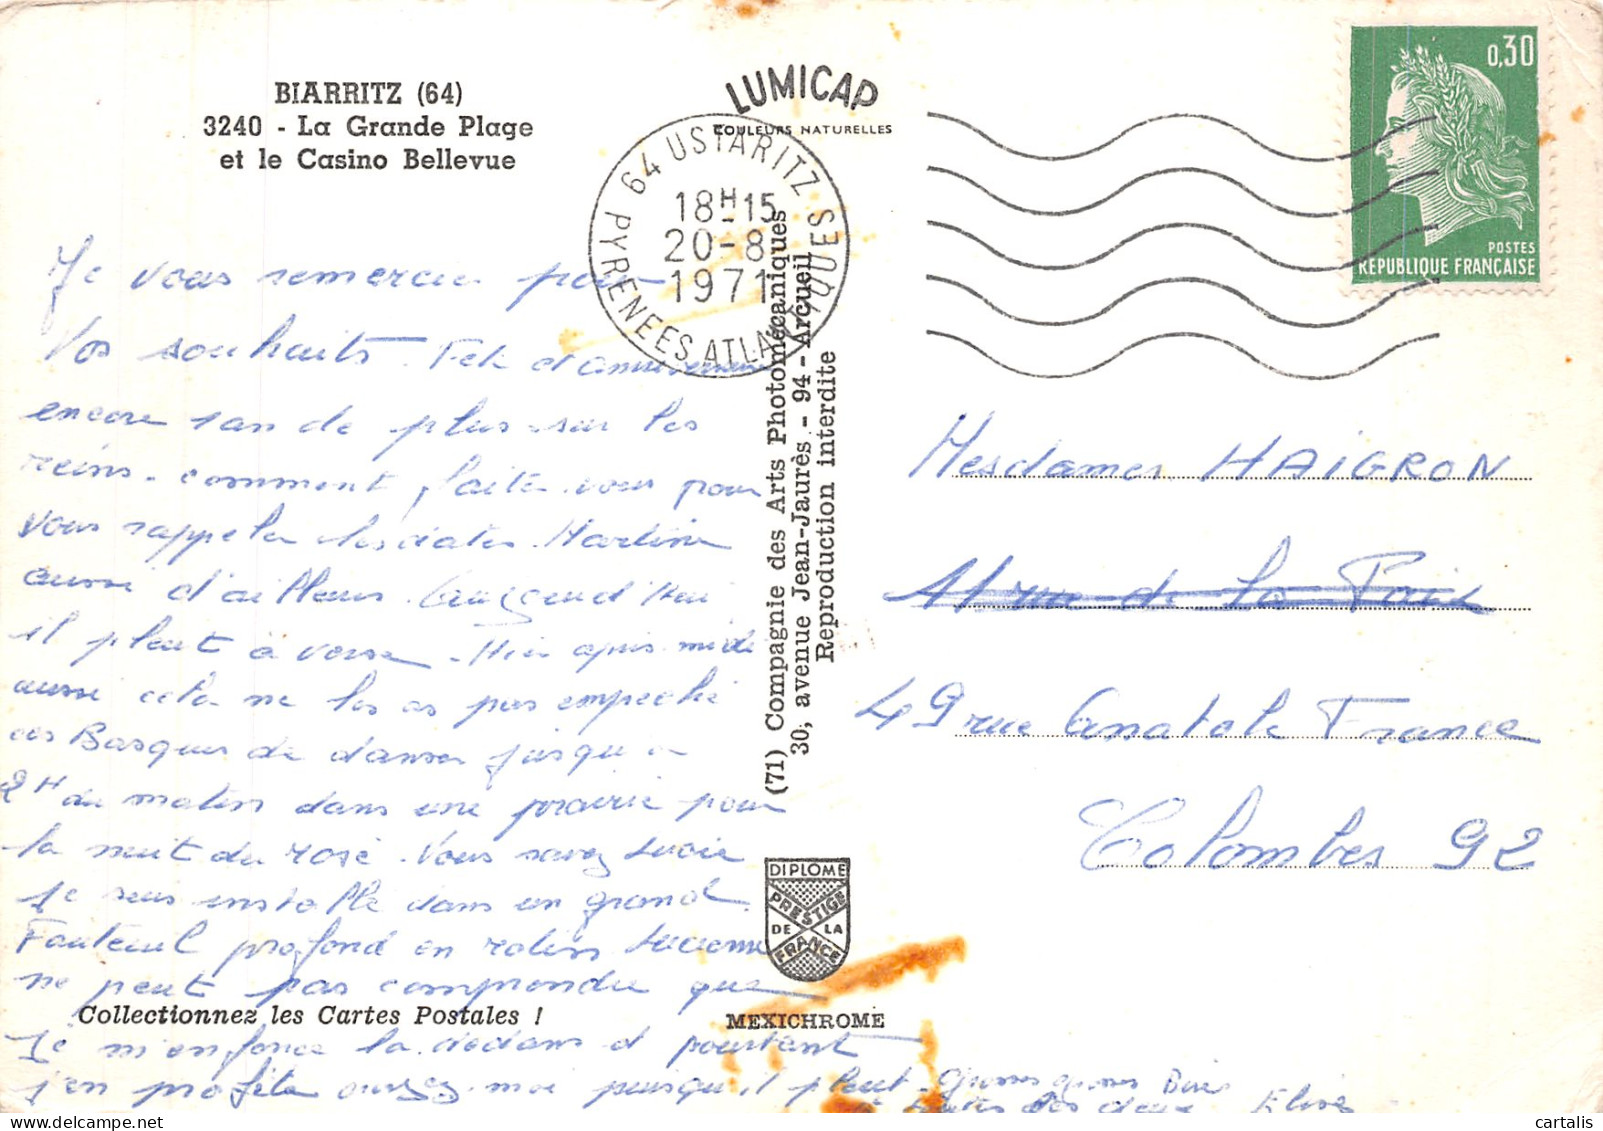 BIARRITZ (64)
3240 - La Grande Plage
et le Casino Bellevue
LUMICAP
COULEURS NATURELLES
64 USTARITZ
18H-15
20-8
1971
PYRENEES ATLANTIQUES
0,30
POSTES
REPUBLIQUE FRANÇAISE
Je vous remercie pour
vos souhaits. Fete et anniversaire
encore 1 an de plus sur les
reins. comment faite vous pour
vous rappeler les dates. Martine
aussi d'ailleurs. Aujourd'hui
il pleut à verse. Hier apres midi
aussi cela ne les as pas empeché
ces Basques de danser jusqu'a
2H du matin dans une prairie pour
la nuit du rosé. Vous savez
Je suis installé dans un grand
Fauteuil profond en rotin
ne peut pas comprendre que
Je m'enfonce la dedans et pourtant
j'en profite moi puisqu'il pleut. Grosses grosses Bises
à toutes les deux Elise
(71) Compagnie des Arts Photomécaniques
30, avenue Jean-Jaurès - 94 - Arcueil
Reproduction interdite
DIPLOME
PRESTIGE
DE LA
FRANCE
Collectionnez les Cartes Postales !
MEXICHROME
Mesdames HAIGRON
11 rue de la Paix
49 rue Anatole France
Colombes 92
cartalis
delcampe.net